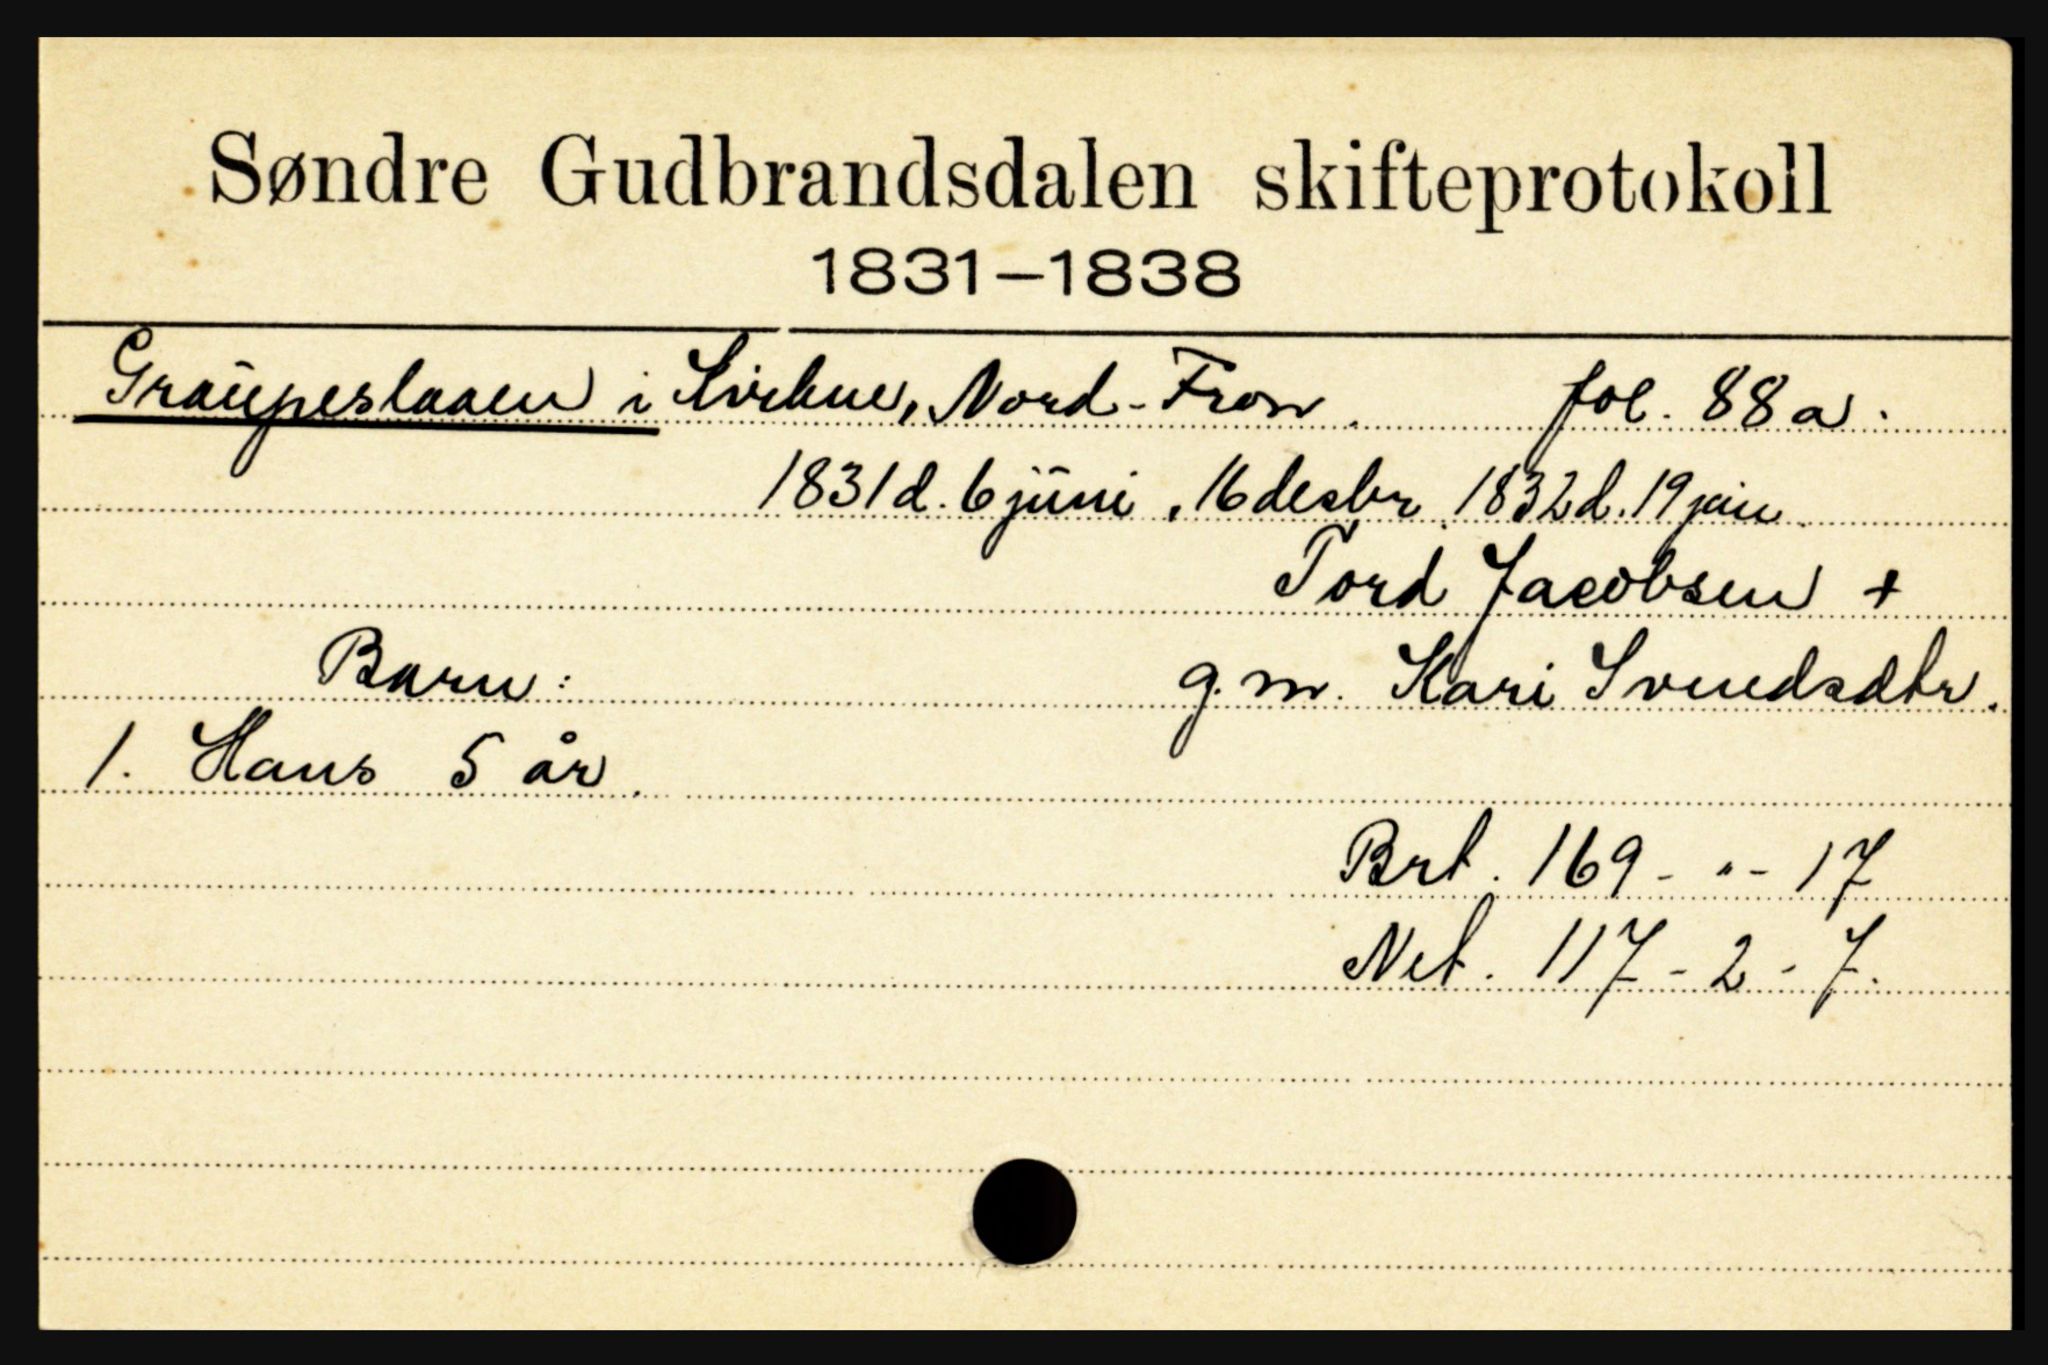 Søndre Gudbrandsdalen skifteprotokoll
1831–1838
Graupeslaaen i Kvikne, Nord-Fron. fol. 88a.
1831 d. 6 juni, 16 desbr. 1832 d. 19 jan.
Tord Jacobsen +
Barn: g.m. Kari Svendsdtr.
1. Hans 5 år.
Brt. 169 - " - 17
Net. 117 - 2 - 7.